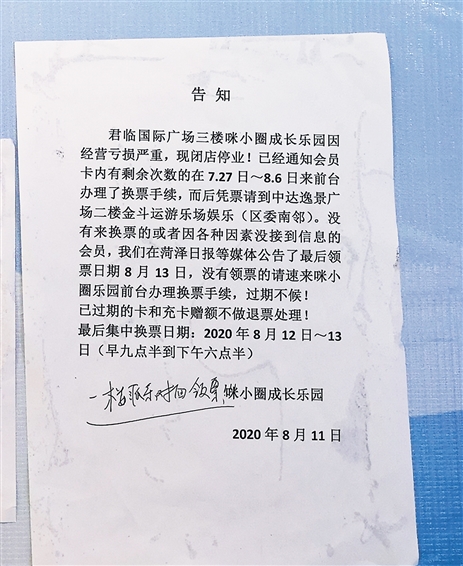 告 知
君临国际广场三楼咪小圈成长乐园因
经营亏损严重，现闭店停业！已经通知会员
卡内有剩余次数的在 7.27 日～8.6 日来前台
办理了换票手续，而后凭票请到中达逸景广
场二楼金斗运游乐场娱乐（区委南邻）。没
有来换票的或者因各种因素没接到信息的
会员，我们在菏泽日报等媒体公告了最后领
票日期 8 月 13 日，没有领票的请速来咪小
圈乐园前台办理换票手续，过期不候！
已过期的卡和充卡赠额不做退票处理！
最后集中换票日期：2020 年 8 月 12 日～13
日（早九点半到下午六点半）
一楼 领票 咪小圈成长乐园
2020 年 8 月 11 日